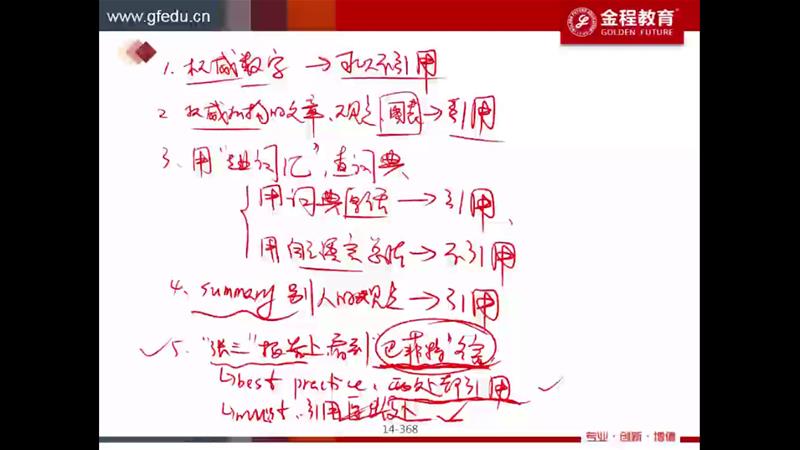 www.gfedu.cn
金程教育
GOLDEN FUTURE
1. 权威数字 → 可以不引用
2. 权威机构的文章、观点、图表 → 引用
3. 用"专业词汇", 查词典
用词典原话 → 引用、
用自己语言总结 → 不引用
4. summary 别人的观点 → 引用
5. "张三"报告上看到"巴菲特"名言
best practice, 两处都引用
must, 引用原出处
14-368
专业·创新·增值